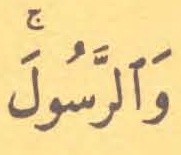 وَٱلرَّسُولَۚ